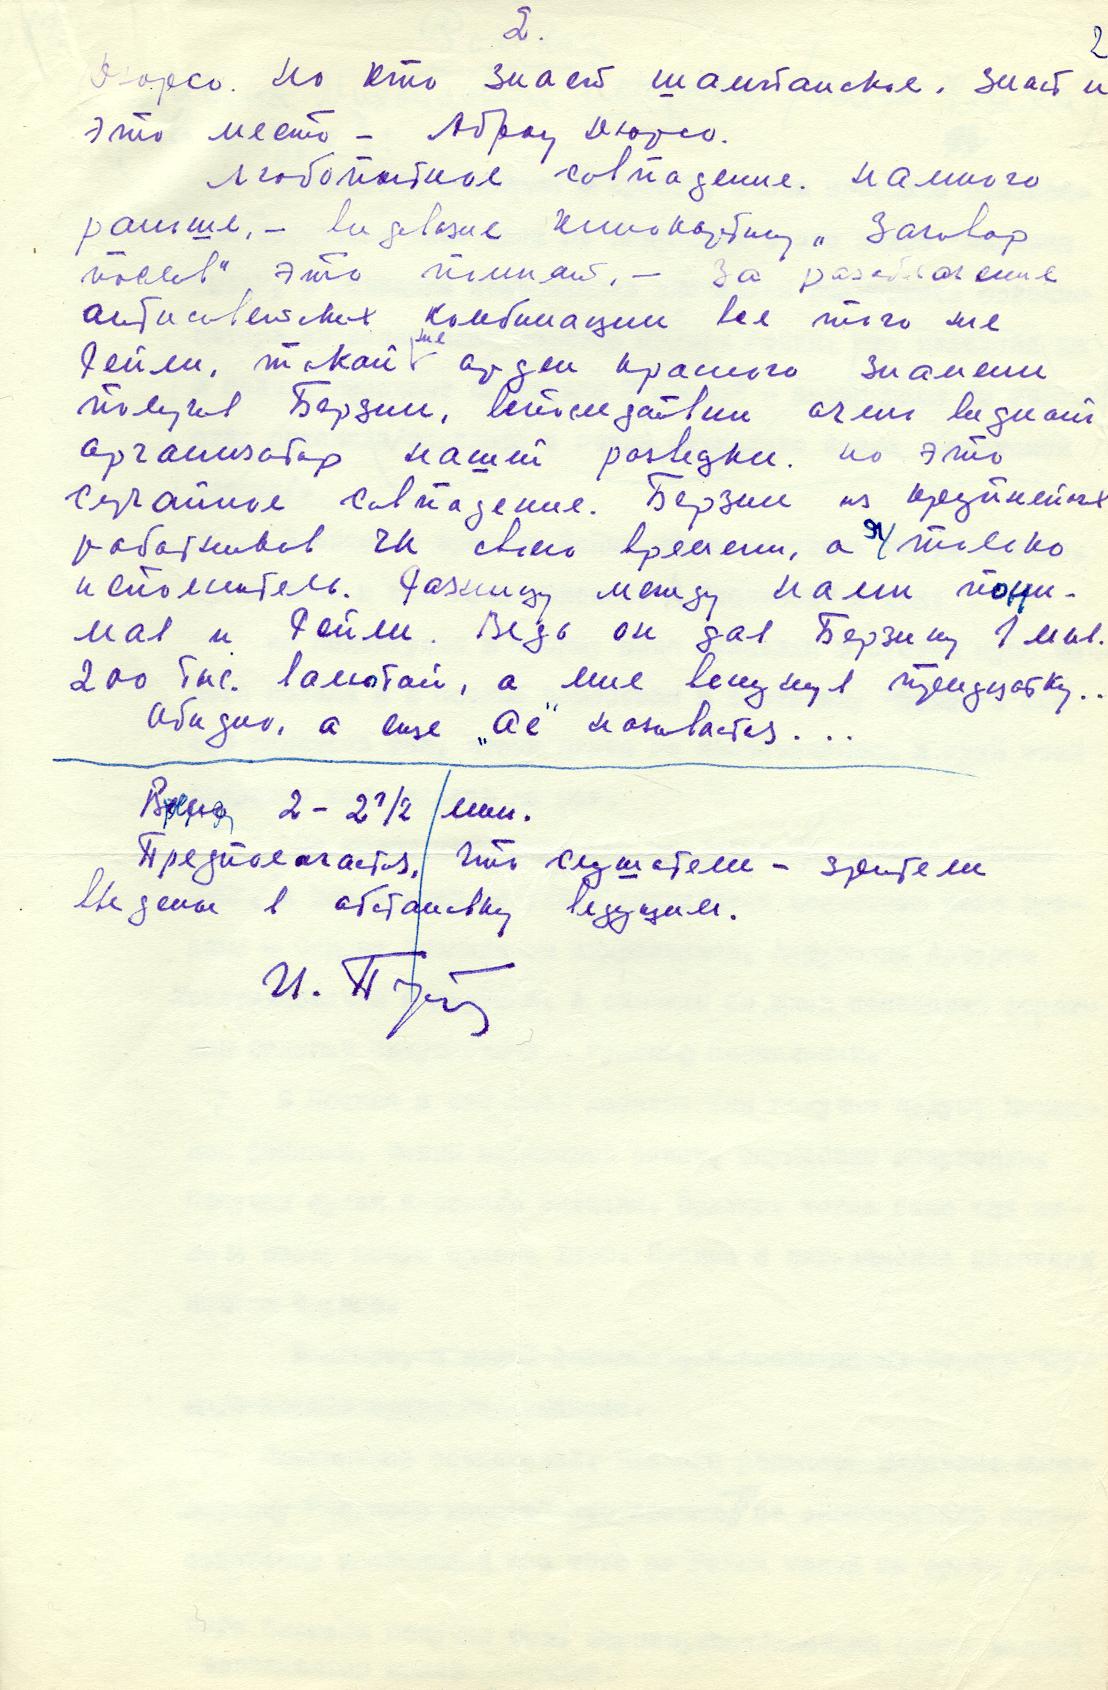 2.
2
Дюрсо. Но кто знает шампанское, знает и
это место – Абрау Дюрсо.
Любопытное совпадение. Намного
раньше, – видевшие кинокартину „Заговор
послов" это помнят, – за разоблачение
антисоветских комбинации все того же
Рейли, такой же орден Красного Знамени
получил Берзин, впоследствии очень видный
организатор нашей разведки. Но это
случайное совпадение. Берзин из крупнейших
работников ЧК своего времени, а я только
исполнитель. Разницу между нами пони-
мал и Рейли. Ведь он дал Берзину 1 мил.
200 тыс. валютой, а мне всунул тридцатку..
Обидно, а еще „Ас" называется...
2 – 2 1/2 мин.
Предполагается, что слушатели – зрители
введены в обстановку ведущим.
И. Прут